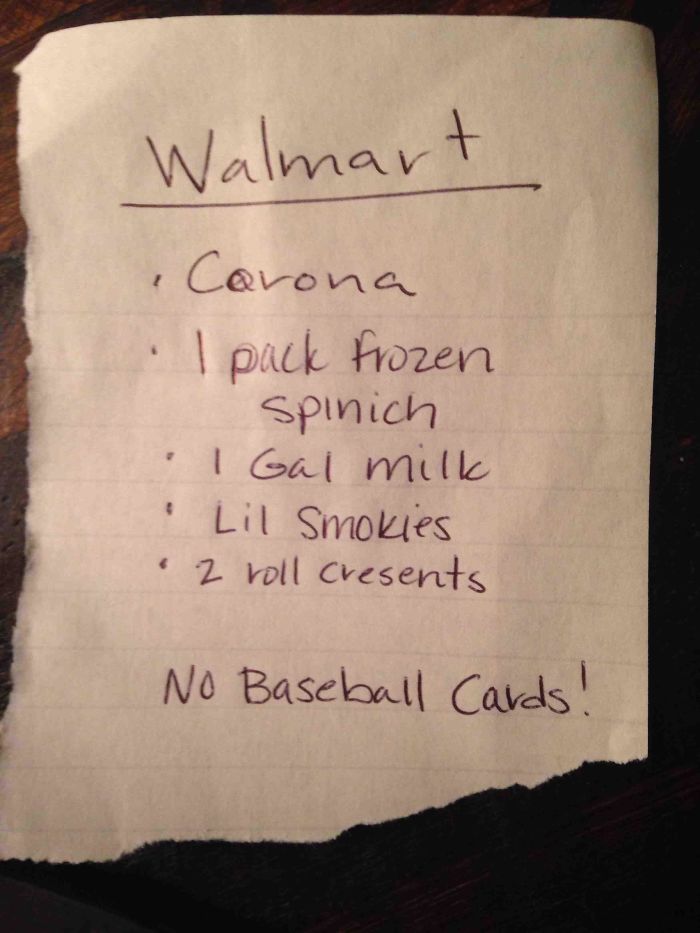 Walmart
· Corona
· 1 pack frozen
spinich
· 1 Gal milk
· Lil Smokies
· 2 roll cresents
No Baseball Cards!